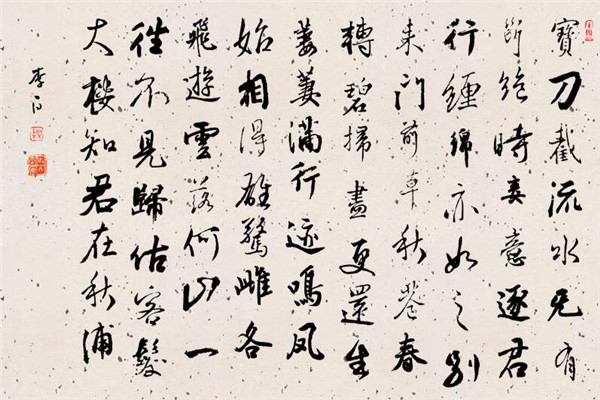 寶刀截流水无有
断絶時妾意逐君
行纏綿亦如之別
来门前草秋巷春
轉碧掃盡更還生
萋萋滿行迹鳴凤
始相得雄驚雌各
飛遊雲落何山一
往不見歸估客髮
大樓知君在秋浦
李白